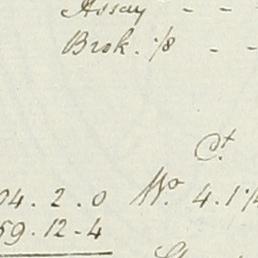 Assay - - -
Brok. 1/8 - -
Ct
04. 2. 0 Wo. 4. 1 1/4
59. 12. 4